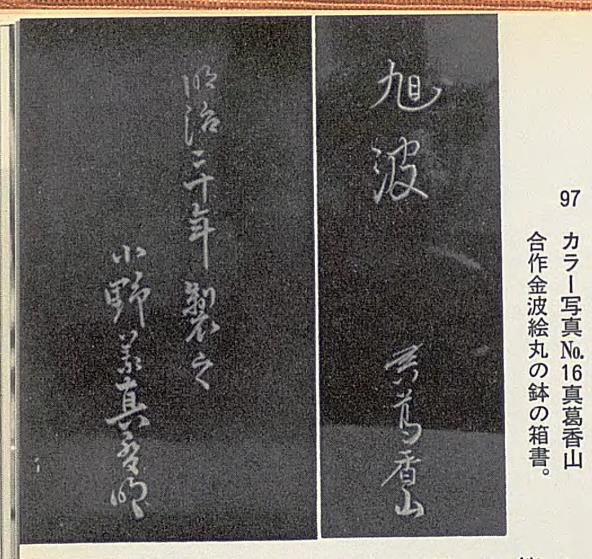 97 カラー写真No.16真葛香山
合作金波絵丸の鉢の箱書。
旭波
真葛香山
明治三十年製之
小野義真